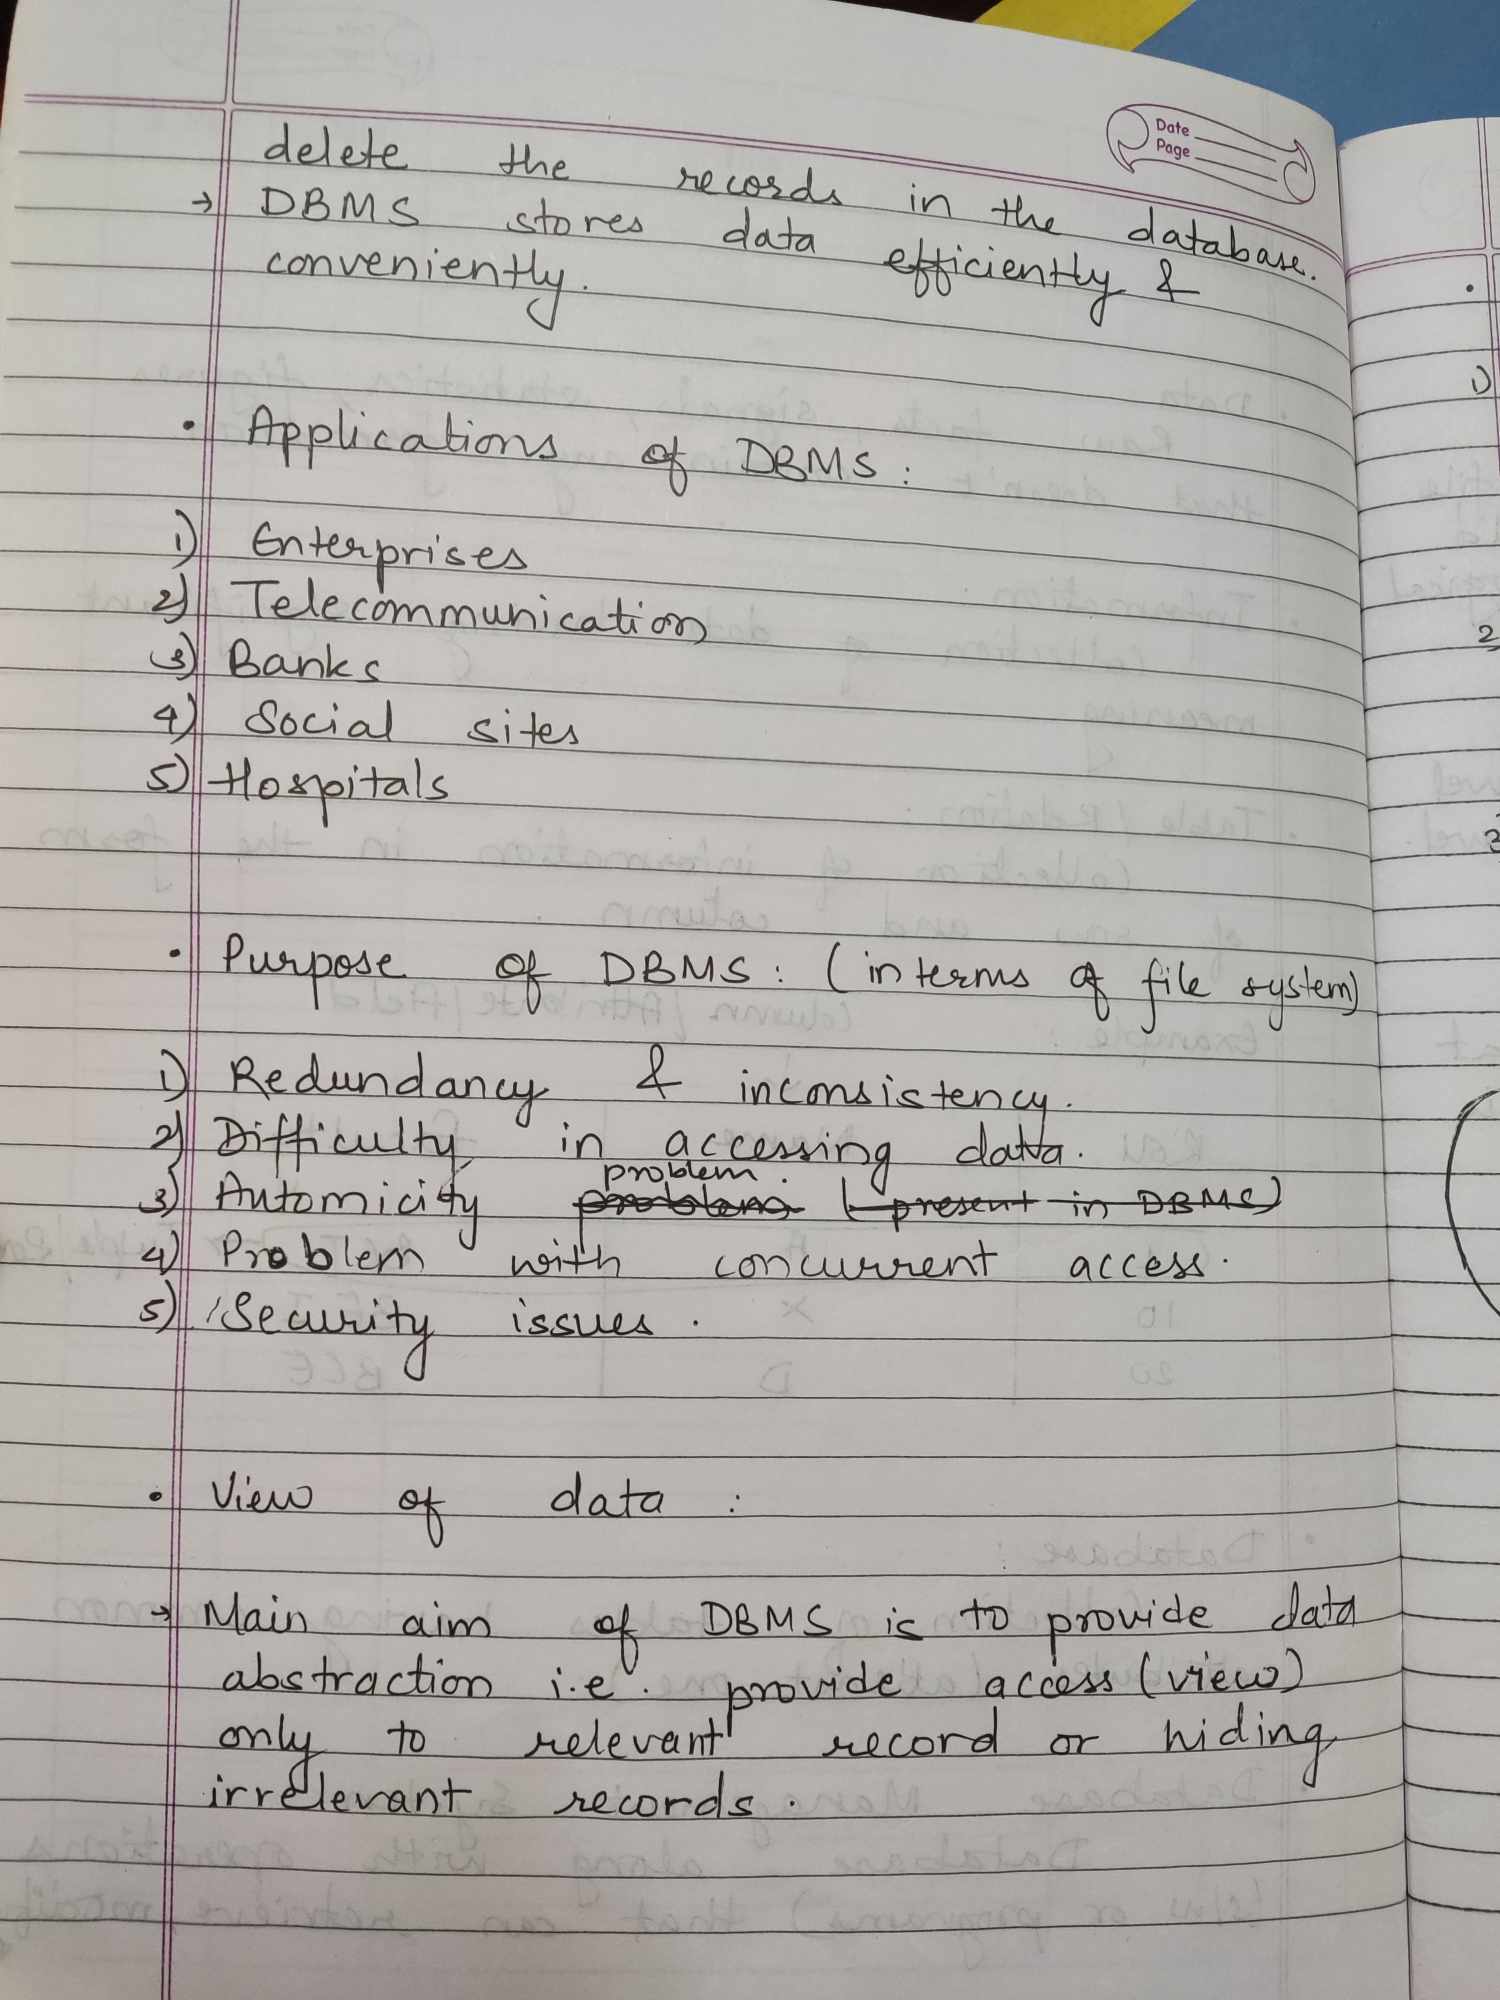 Date
Page
delete the records in the database.
→ DBMS stores data efficiently &
conveniently.
• Applications of DBMS :
1) Enterprises
2) Telecommunication
3) Banks
4) Social sites
5) Hospitals
• Purpose of DBMS : (in terms of file system)
1) Redundancy & inconsistency.
2) Difficulty in accessing data.
problem.
3) Automicity problems (present in DBMS)
4) Problem with concurrent access.
5) Security issues.
• View of data :
→ Main aim of DBMS is to provide data
abstraction i.e. provide access (view)
only to relevant record or hiding
irrelevant records.